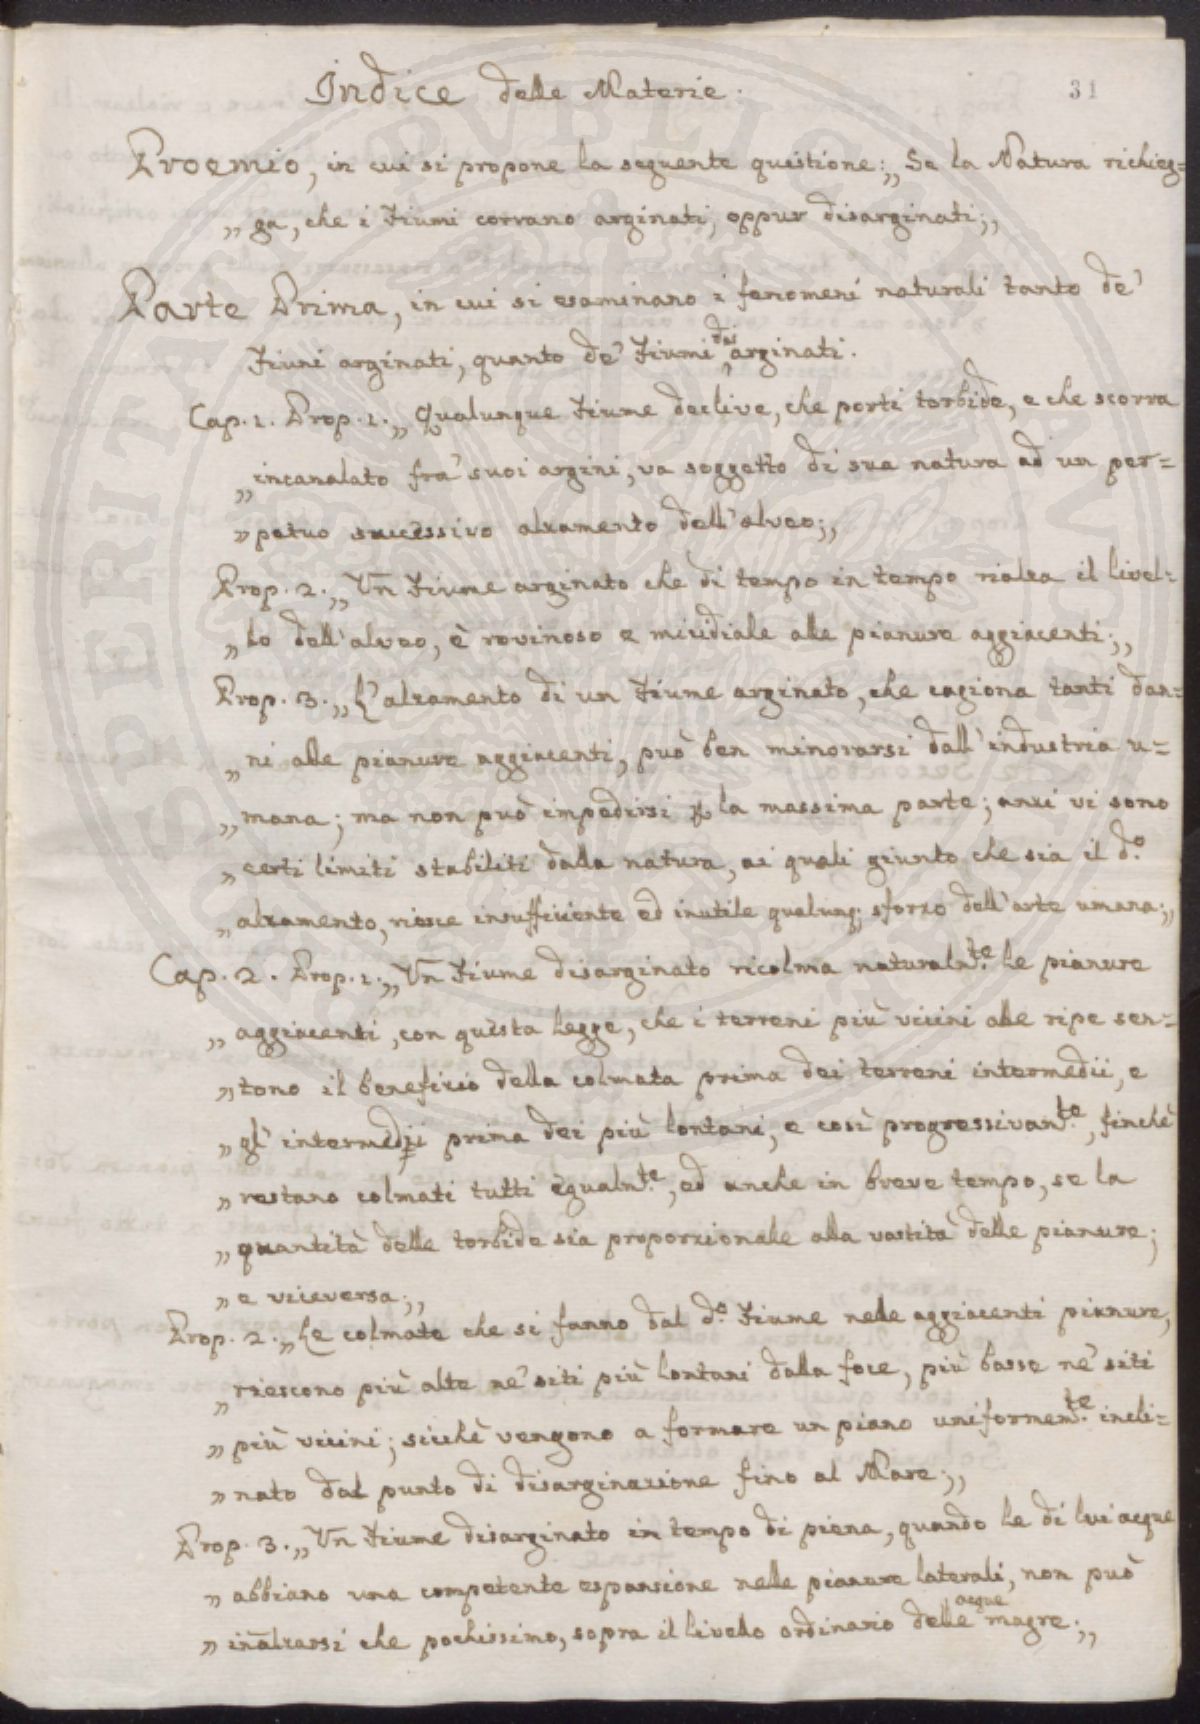 Indice delle Materie.
31
Proemio, in cui si propone la seguente questione; „ Se la Natura richieg=
„ ga, che i Fiumi corrano arginati, oppur disarginati; „
Parte Prima, in cui si esaminano i fenomeni naturali tanto de'
Fiumi arginati, quanto de' Fiumi disarginati.
Cap. 1. Prop. 1. „ Qualunque Fiume declive, che porti torbide, e che scorra
„ incanalato fra' suoi argini, va soggetto di sua natura ad un per=
„ petuo successivo alzamento dell'alveo; „
Prop. 2. „ Un Fiume arginato che di tempo in tempo rialza il livel=
„ lo dell'alveo, è rovinoso e micidiale alle pianure aggiacenti; „
Prop. 3. „ L'alzamento di un Fiume arginato, che cagiona tanti dan=
„ ni alle pianure aggiacenti, può ben minorarsi dall'industria u=
„ mana; ma non può impedirsi p la massima parte; anzi vi sono
„ certi limiti stabiliti dalla natura, ai quali giunto che sia il d.o
„ alzamento, riesce insufficiente ed inutile qualunq; sforzo dell'arte umana; „
Cap. 2. Prop. 1. „ Un Fiume disarginato ricolma naturalm.te le pianure
„ aggiacenti, con questa legge, che i terreni più vicini alle ripe sen=
„ tono il beneficio della colmata prima dei terreni intermedii, e
„ gl' intermedii prima dei più lontani, e così progressivam.te, finchè
„ restano colmati tutti egualm.te, ed anche in breve tempo, se la
„ quantità delle torbide sia proporzionale alla vastità delle pianure;
„ e viceversa; „
Prop. 2. „ Le colmate che si fanno dal d.o Fiume nelle aggiacenti pianure,
„ riescono più alte ne' siti più lontani dalla foce, più basse ne' siti
„ più vicini; sicchè vengono a formare un piano uniformem.te incli=
„ nato dal punto di disarginazione fino al Mare; „
Prop. 3. „ Un Fiume disarginato in tempo di piena, quando le di lui acque
„ abbiano una competente espansione nelle pianure laterali, non può
„ inalzarsi che pochissimo, sopra il livello ordinario delle acque magre; „